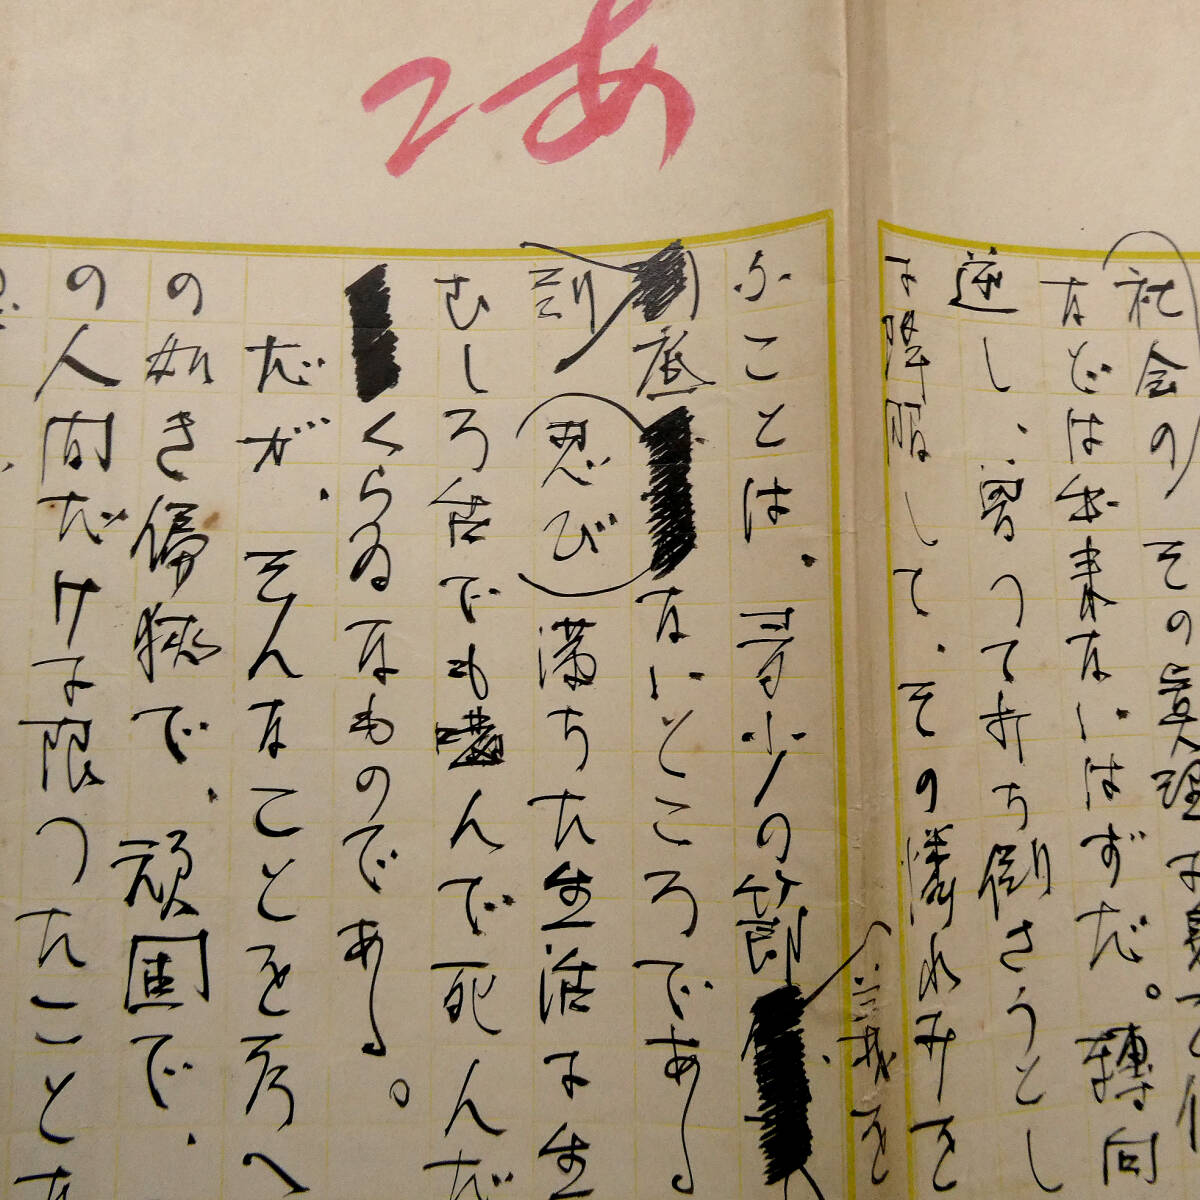 2あ
社会のその眞理
などは出来ないはずだ。轉向
逆し、曽つて打ち倒さうとし
に降服して、その憐れみを
義を
ふことは、少の節
底ないところである
忍び満ちた生活に生
むしろ舌でも噛んで死んだ
くらゐなものである。
だが、そんなことを考へ
の如き偏狭で、頑固で、
の人間だけに限つたこと